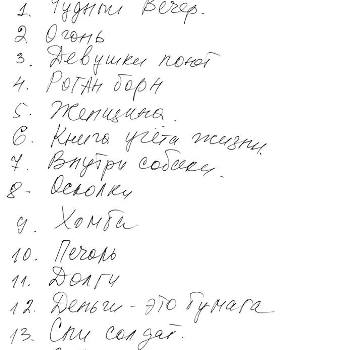 1. Чудный Вечер.
2. Огонь
3. Девушки поют
4. Роган борн
5. Женщина.
6. Книга учёта жизни.
7. Внутри собаки.
8. Осколки
9. Хомба
10. Печаль
11. Долги
12. Деньги - это бумага
13. Спи солдат.